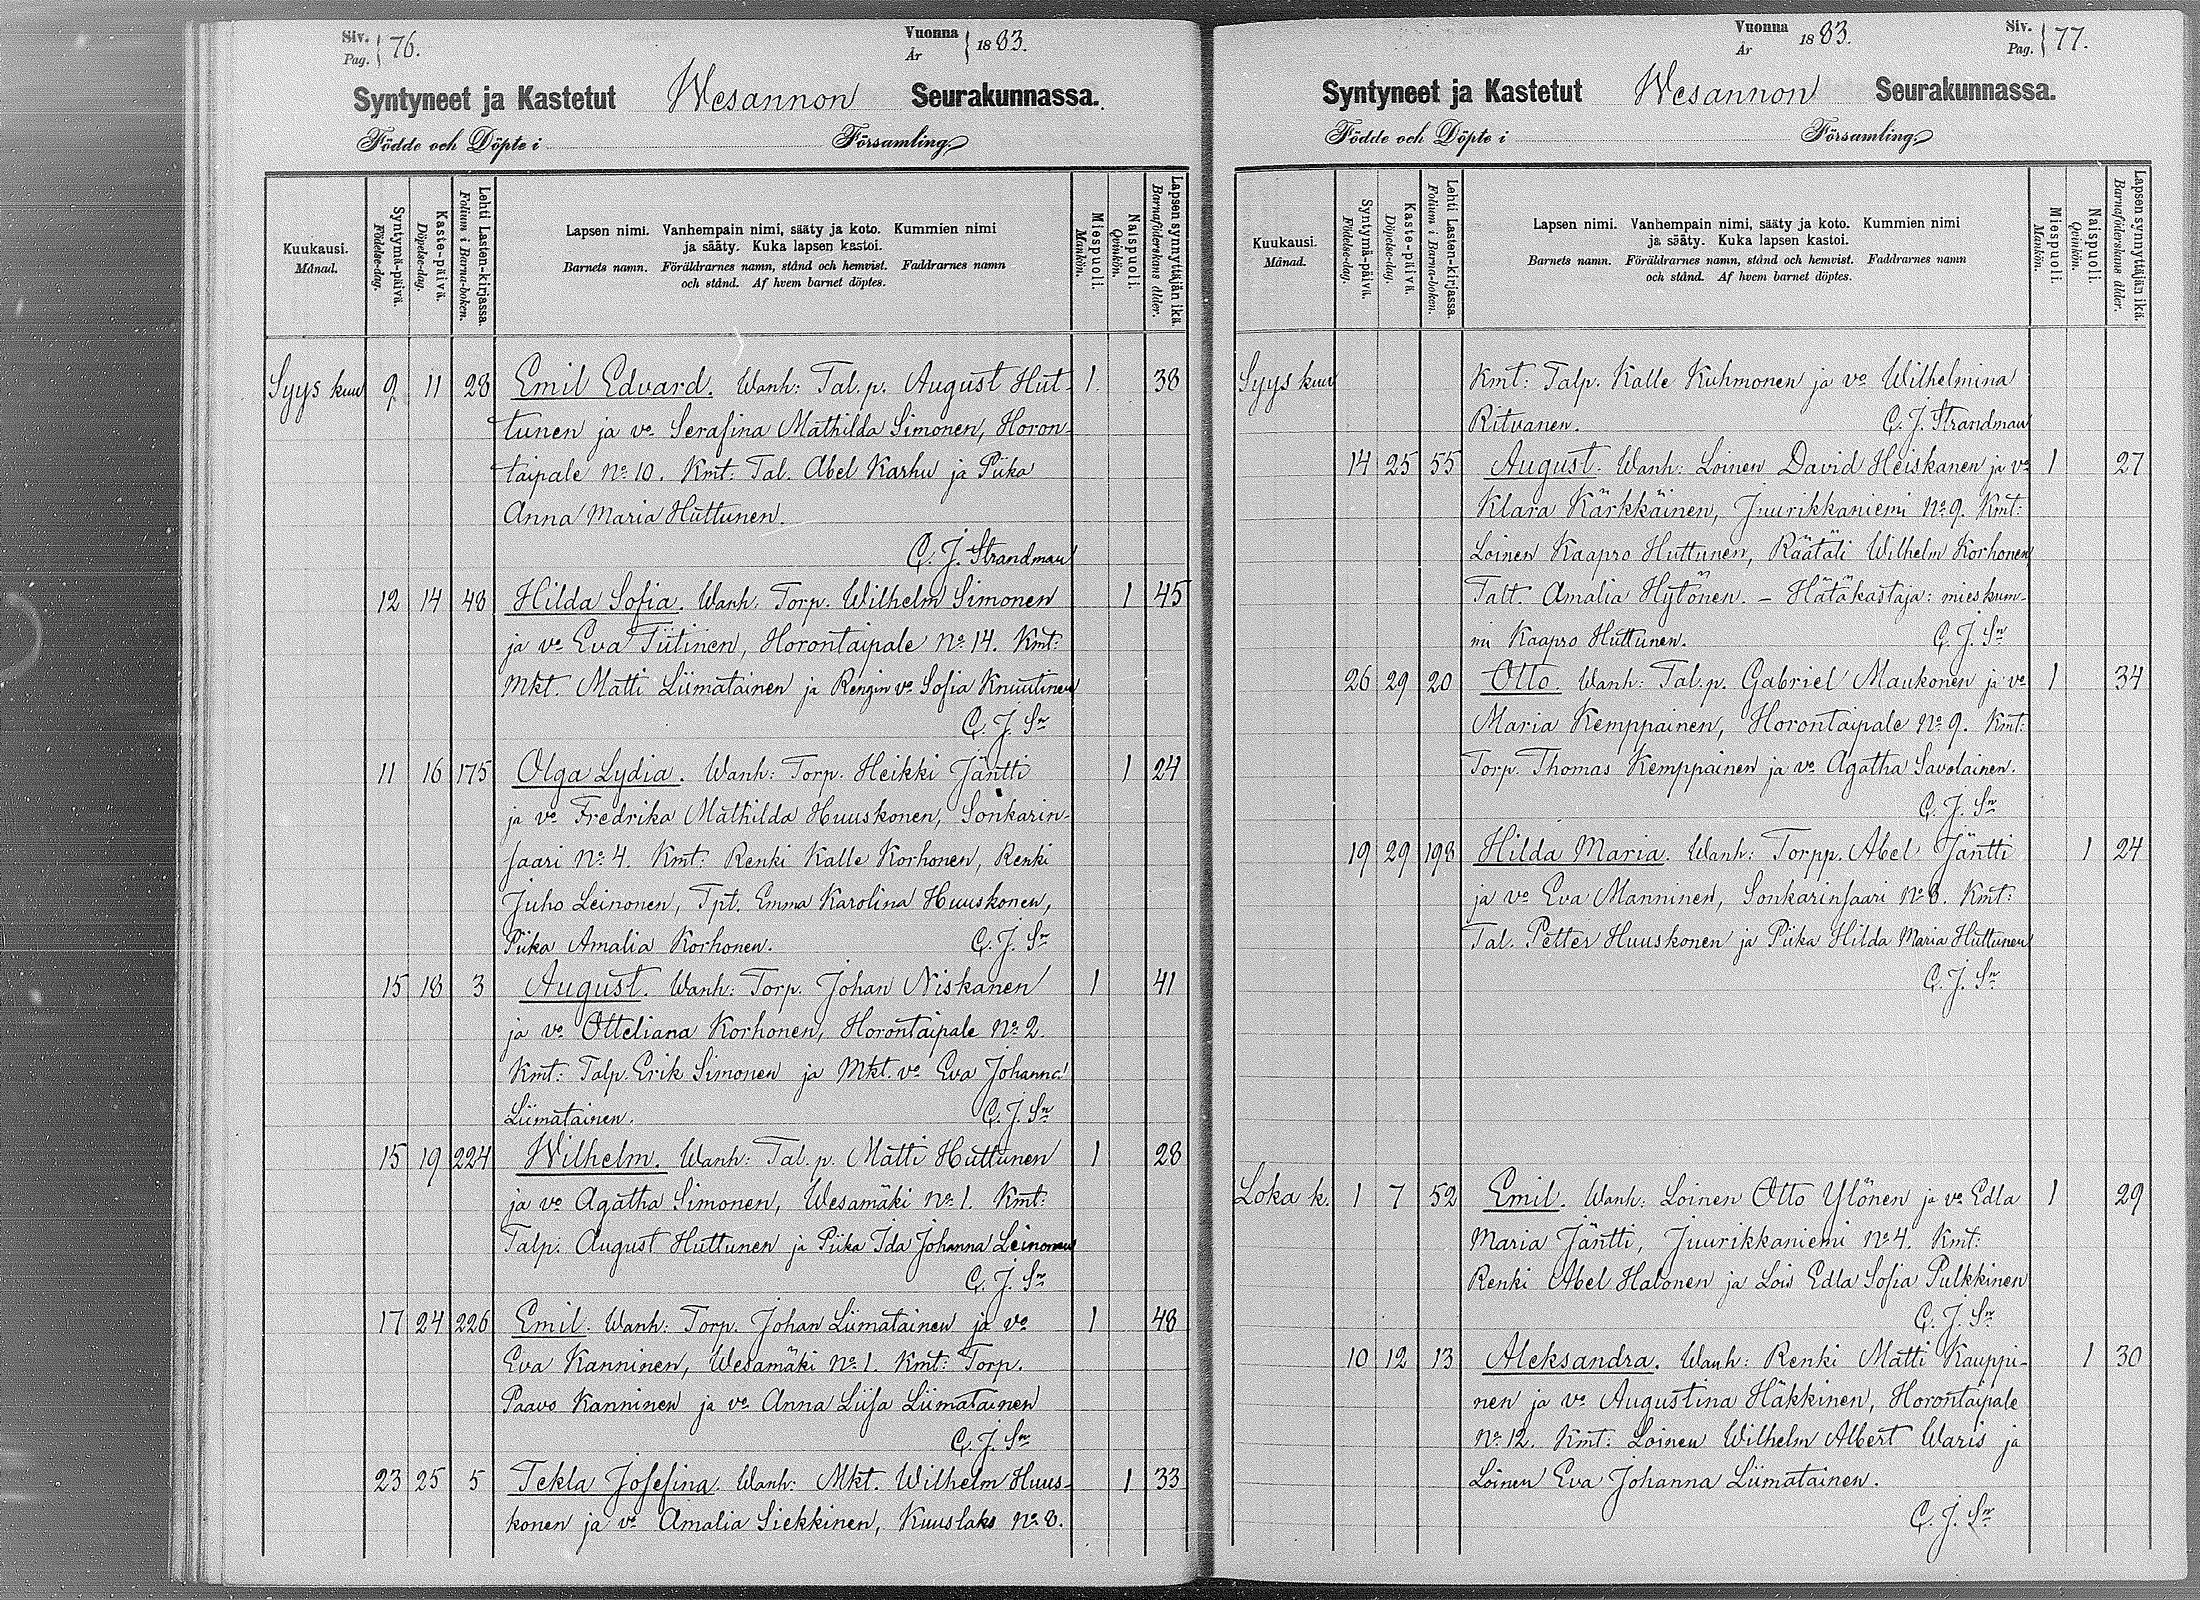 Siv. Pag. 76.
Vuonna År 1883.
Syntyneet ja Kastetut Wesannon Seurakunnassa.
Födde och Döpte i Församling.
Kuukausi. Månad.
Syntymä-päivä. Födelse-dag.
Kaste-päivä. Döpelse-dag.
Lehti Lasten-kirjassa. Folium i Barna-boken.
Lapsen nimi. Vanhempain nimi, sääty ja koto. Kummien nimi
ja sääty. Kuka lapsen kastoi.
Barnets namn. Föräldrarnes namn, stånd och hemvist. Faddrarnes namn
och stånd. Af hvem barnet döptes.
Miespuoli. Mankön.
Naispuoli. Qvinkön.
Lapsen synnyttäjän ikä. Barnaföderskans ålder.
Syys kuu 9 11 28 Emil Edvard. Wanh: Tal.p. August Hut- 1. 38
tunen ja vo Serafina Mathilda Simonen, Horon-
taipale No 10. Kmt: Tal. Abel Karhu ja Piika
Anna Maria Huttunen.
C. J. Strandman
12 14 48 Hilda Sofia. Wanh. Torp. Wilhelm Simonen 1 45
ja vo Eva Tiitinen, Horontaipale No 14. Kmt:
Mkt. Matti Liimatainen ja Rengin vo Sofia Knuutinen
C. J. Sn
11 16 175 Olga Lydia. Wanh: Torp. Heikki Jäntti 1 24
ja vo Fredrika Mathilda Huuskonen, Sonkarin-
saari No 4. Kmt: Renki Kalle Korhonen, Renki
Juho Leinonen, Tpt. Emma Karolina Huuskonen,
Piika Amalia Korhonen. C. J. Sn
15 18 3 August. Wanh: Torp. Johan Niskanen 1 41
ja vo Otteliana Korhonen, Horontaipale No 2.
Kmt: Talp. Erik Simonen ja Mkt. vo Eva Johanna
Liimatainen. C. J. Sn
15 19 224 Wilhelm. Wanh: Tal.p. Matti Huttunen 1 28
ja vo Agatha Simonen, Wesamäki No 1. Kmt:
Talp. August Huttunen ja Piika Ida Johanna Leinonen
C. J. Sn
17 24 226 Emil. Wanh: Torp. Johan Liimatainen ja vo 1 48
Eva Kanninen, Wesamäki No 1. Kmt: Torp.
Paavo Kanninen ja vo Anna Liisa Liimatainen
C. J. Sn
23 25 5 Tekla Josefina. Wanh: Mkt. Wilhelm Huus- 1 33
konen ja vo Amalia Siekkinen, Kuuslaks No 8.
Vuonna År 1883.
Siv. Pag. 77.
Syntyneet ja Kastetut Wesannon Seurakunnassa.
Födde och Döpte i Församling.
Kuukausi. Månad.
Syntymä-päivä. Födelse-dag.
Kaste-päivä. Döpelse-dag.
Lehti Lasten-kirjassa. Folium i Barna-boken.
Lapsen nimi. Vanhempain nimi, sääty ja koto. Kummien nimi
ja sääty. Kuka lapsen kastoi.
Barnets namn. Föräldrarnes namn, stånd och hemvist. Faddrarnes namn
och stånd. Af hvem barnet döptes.
Miespuoli. Mankön.
Naispuoli. Qvinkön.
Lapsen synnyttäjän ikä. Barnaföderskans ålder.
Syys kuu Kmt: Talp. Kalle Kuhmonen ja vo Wilhelmina
Ritvanen. C. J. Strandman
14 25 55 August. Wanh: Loinen David Heiskanen ja vo 1 27
Klara Kärkkäinen, Juurikkaniemi No 9. Kmt:
Loinen Kaapro Huttunen, Räätäli Wilhelm Korhonen
Talt. Amalia Hytönen. – Hätäkastaja: mieskum-
mi Kaapro Huttunen. C. J. Sn
26 29 20 Otto. Wanh: Tal.p. Gabriel Maukonen ja vo 1 34
Maria Kemppainen, Horontaipale No 9. Kmt:
Torp. Thomas Kemppainen ja vo Agatha Savolainen.
C. J. Sn
19 29 198 Hilda Maria. Wanh: Torpp. Abel Jäntti 1 24
ja vo Eva Manninen, Sonkarinsaari No 8. Kmt:
Tal. Petter Huuskonen ja Piika Hilda Maria Huttunen
C. J. Sn
Loka k. 1 7 52 Emil. Wanh: Loinen Otto Ylönen ja vo Edla 1 29
Maria Jäntti, Juurikkaniemi No 4. Kmt:
Renki Abel Halonen ja Lois Edla Sofia Pulkkinen
C. J. Sn
10 12 13 Aleksandra. Wanh: Renki Matti Kauppi- 1 30
nen ja vo Augustina Häkkinen, Horontaipale
No 12. Kmt: Loinen Wilhelm Albert Waris ja
Loinen Eva Johanna Liimatainen.
C. J. Sn